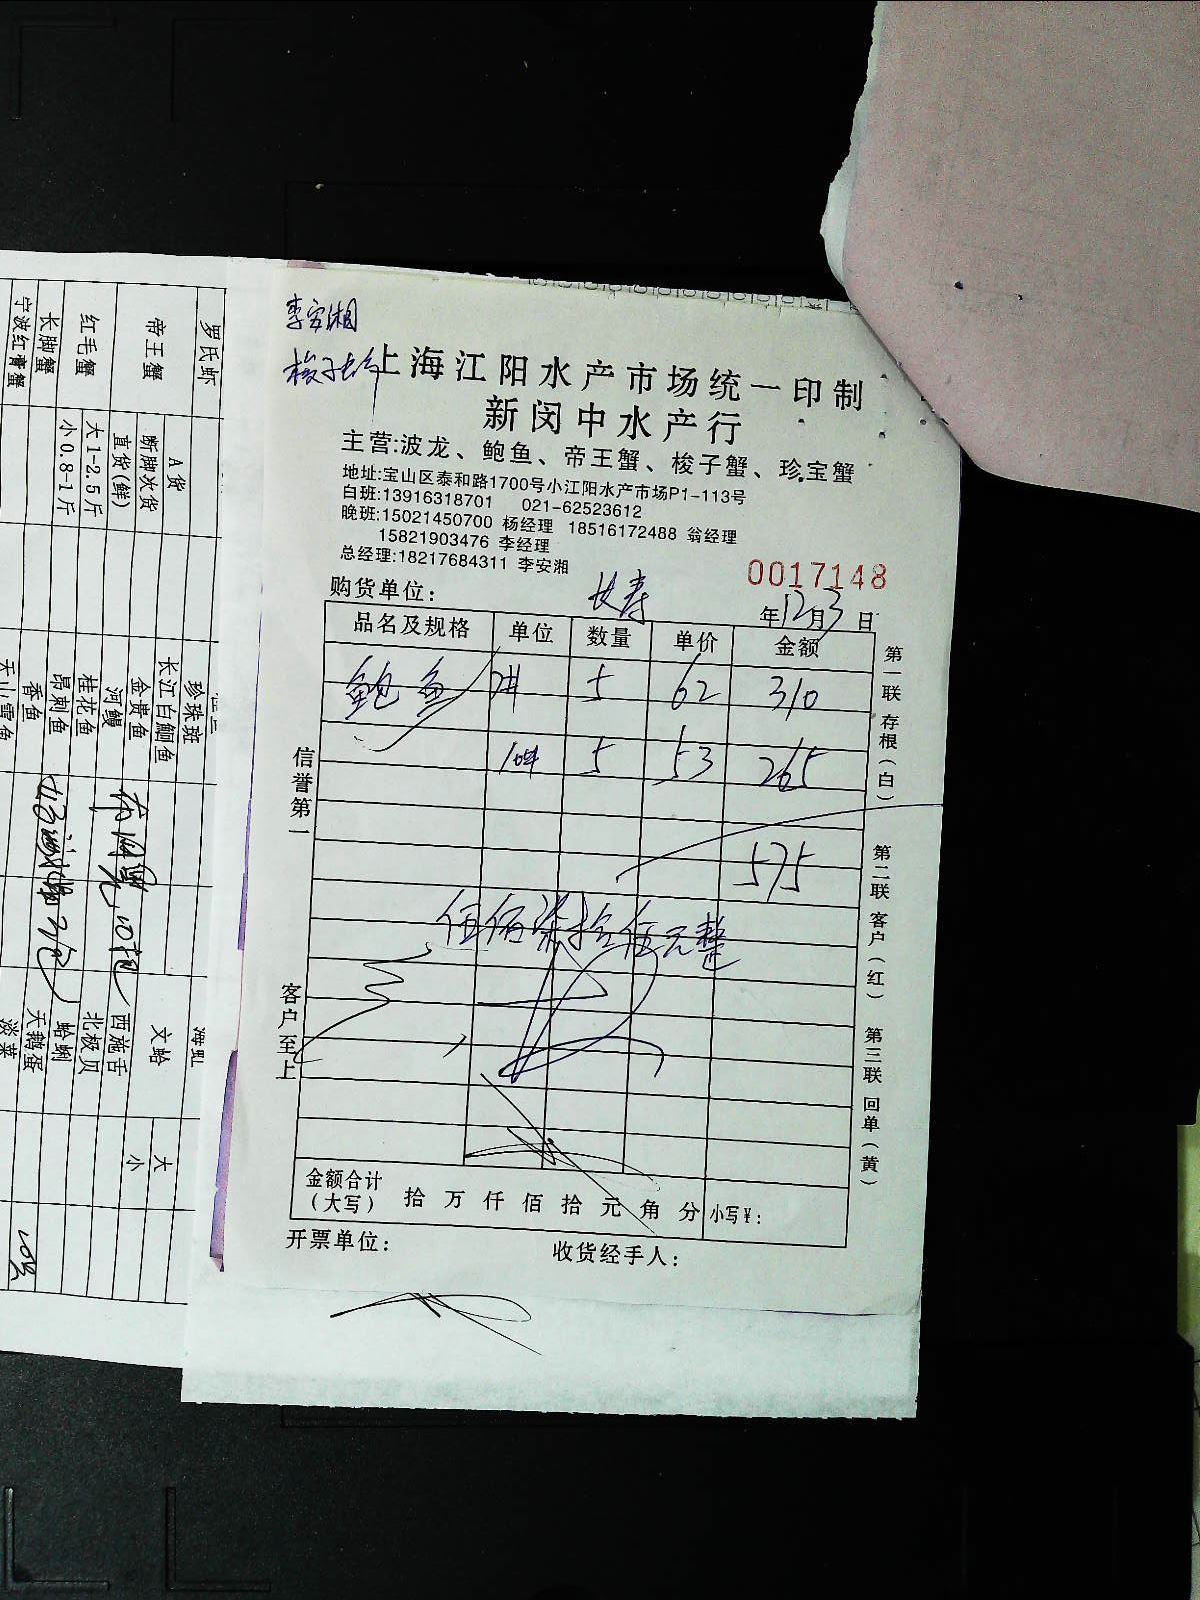 李安湘
梭子蟹
上海江阳水产市场统一印制
新闵中水产行
主营:波龙、鲍鱼、帝王蟹、梭子蟹、珍宝蟹
地址:宝山区泰和路1700号小江阳水产市场P1-113号
白班:13916318701 021-62523612
晚班:15021450700 杨经理 18516172488 翁经理
15821903476 李经理
总经理:18217684311 李安湘
0017148
购货单位: 长寿
年12月3日
品名及规格 单位 数量 单价 金额
鲍鱼 2# 5 62 310
1# 5 53 265
575
伍佰柒拾伍元整
金额合计
(大写) 拾 万 仟 佰 拾 元 角 分 小写¥:
开票单位: 收货经手人:
信誉第一
客户至上
第一联 存根(白)
第二联 客户(红)
第三联 回单(黄)
罗氏虾
帝王蟹
A货
断脚次货
直货(鲜)
红毛蟹
大1-2.5斤
小0.8-1斤
长脚蟹
宁波红膏蟹
珍珠斑
长江白鮰鱼
金贵鱼
河鳗
桂花鱼
昂刺鱼
香鱼
天山雪鱼
海虹
文蛤
大
小
西施舌
北极贝
蛤蜊
天鹅蛋
淡菜